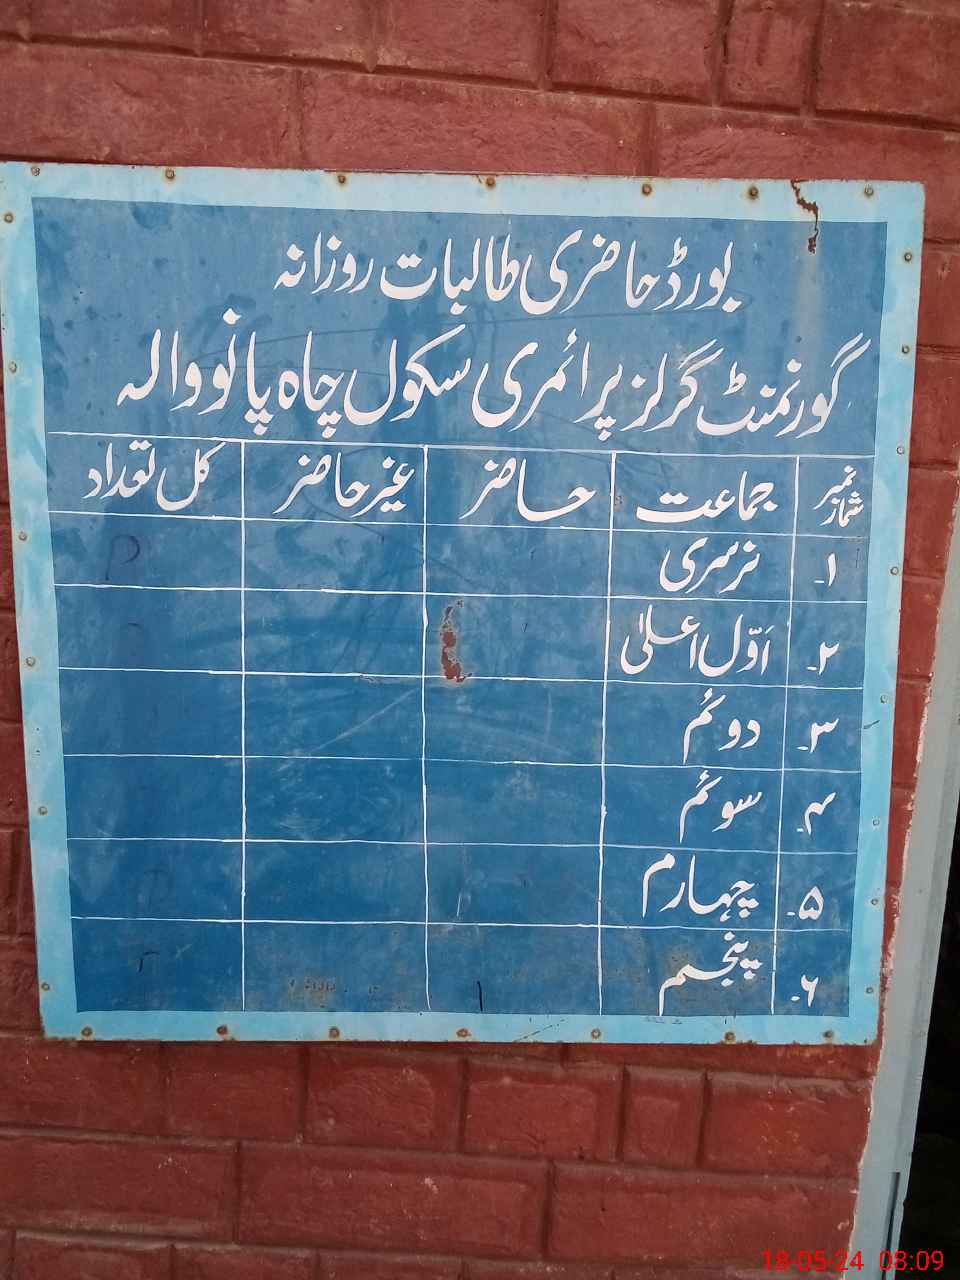 بورڈ حاضری طالبات روزانہ
گورنمنٹ گرلز پرائمری سکول چاہ پانووالہ
نمبر شمار جماعت حاضر غیر حاضر کل تعداد
۱۔ نرسری
۲۔ اَوّل اعلیٰ
۳۔ دوئم
۴۔ سوئم
۵۔ چہارم
۶۔ پنجم
18-05-24 08:09